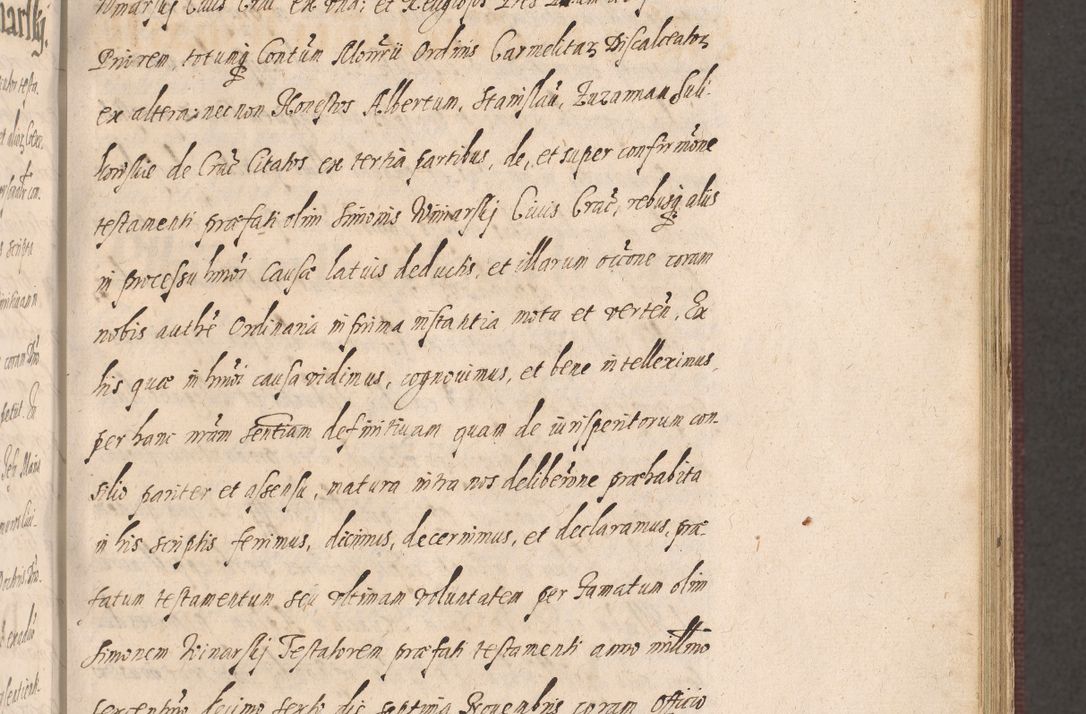 Winarskij Civis Crac ex una; et Religiosos Pres
Priorem, totumq Contũm Monrii Ordinis Carmelitaꝝ Discalceatoꝝ
ex altera: nec non Honestos Albertum, Stanislaũ, Zuzannam Suli-
kowskie de Crac Citatos ex tertia partibus, de, et super confirmõne
testamenti præfati olim Simonis Winarskij Civis Crac, rebusq alijs
in processu hmõi causæ latius deductis, et illarum occõne coram
nobis authẽ Ordinaria in prima instantia mota et verteñ, Ex
his quæ in hmõi causa vidimus, cognovimus, et bene intelleximus,
per hanc nrãm sentiam definitivam quam de iurisperitorum con-
silio pariter et assensu, matura intra nos deliberõne præhabita
in his scriptis ferimus, dicimus, decernimus, et declaramus, præ-
fatum testamentum seu ultimam voluntatem per Famatum olim
Simonem Winarskij Testatorem præfati testamenti anno millmo
sexcentmo decimo sexto die septima Novembris coram Officio